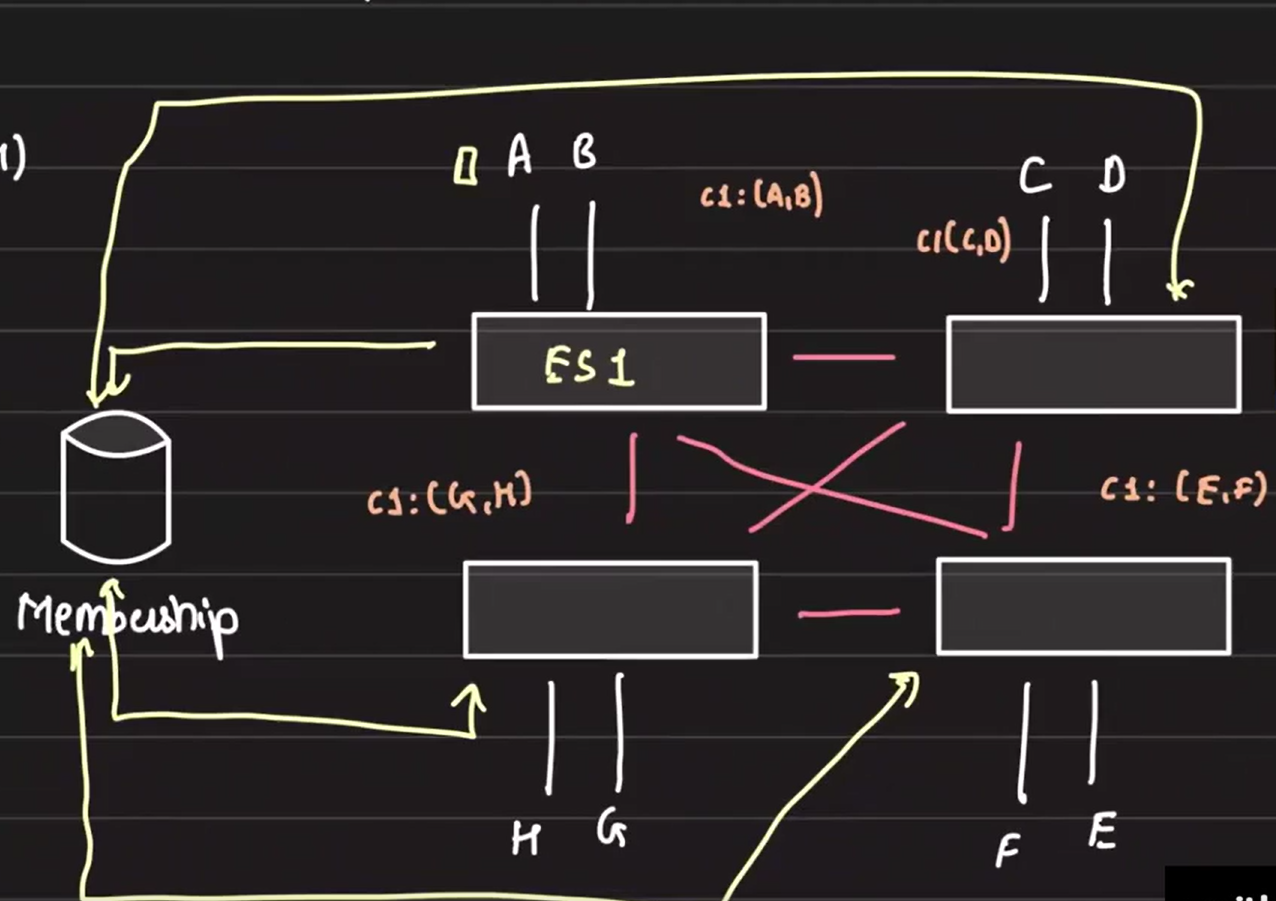 1)
A B
C1:(A,B)
C D
C1(C,D)
ES1
C1:(G,H)
C1: (E,F)
Membership
H G
F E